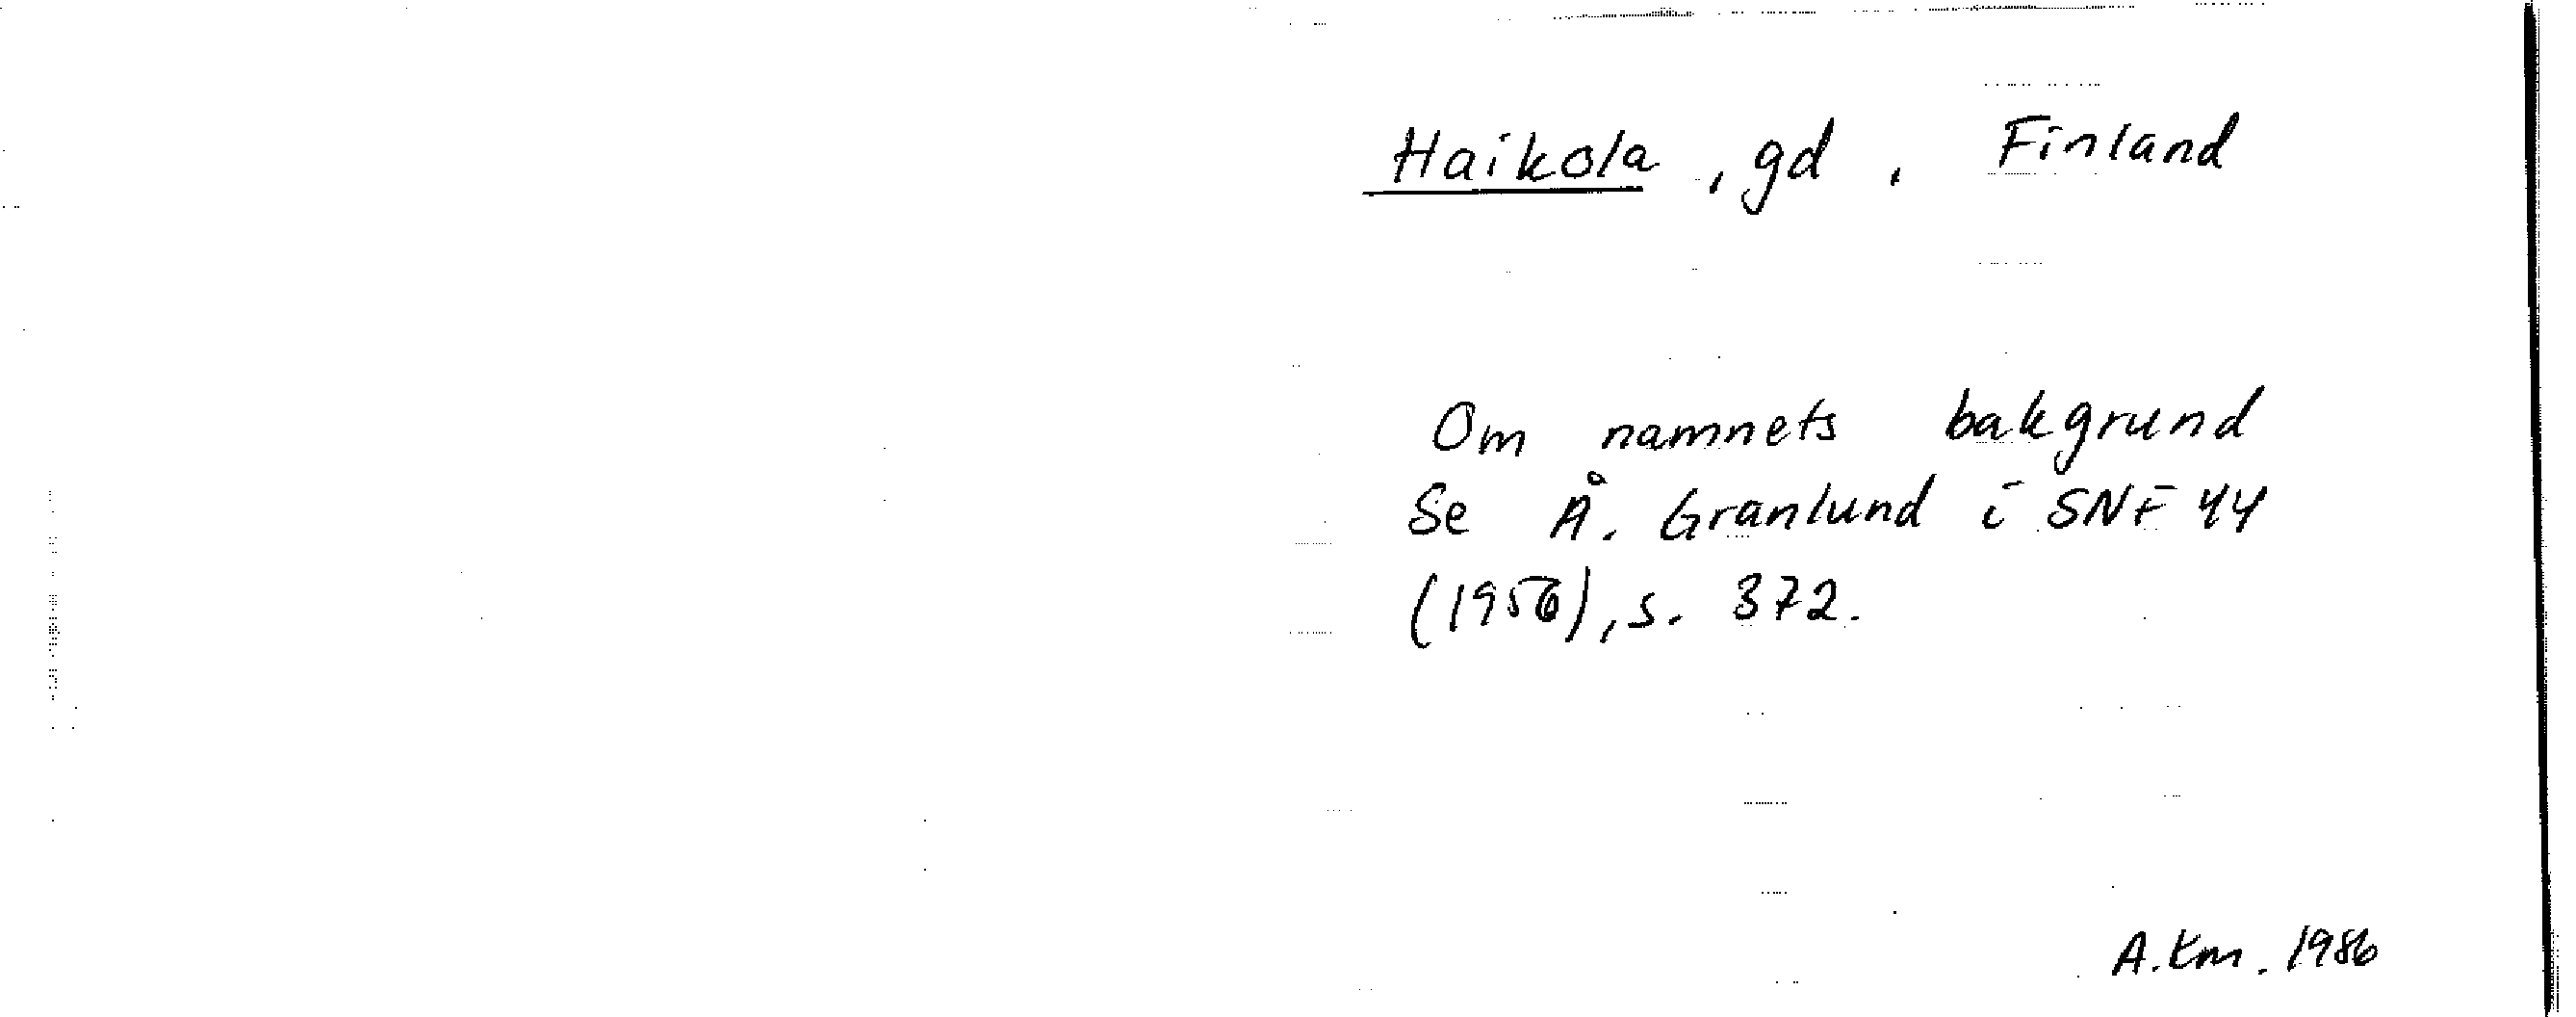 Haikola, gd, Finland
Om namnets bakgrund
Se Å. Granlund i SNF 44
(1956), s. 372.
A. Km. 1986